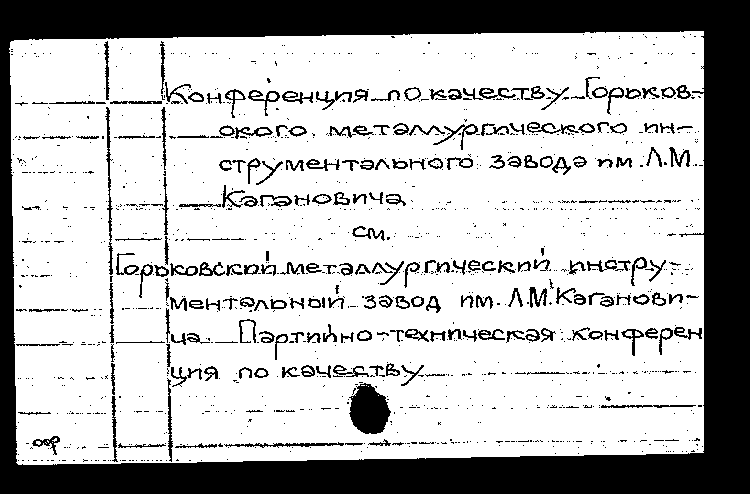 Конференция по качеству Горьков-
ского металлургического ин-
струментального завода им. Л.М.
Кагановича
см.
Горьковский металлургический инстру-
ментальный завод им. Л.М. Каганови-
ча. Партийно-техническая конферен
ция по качеству